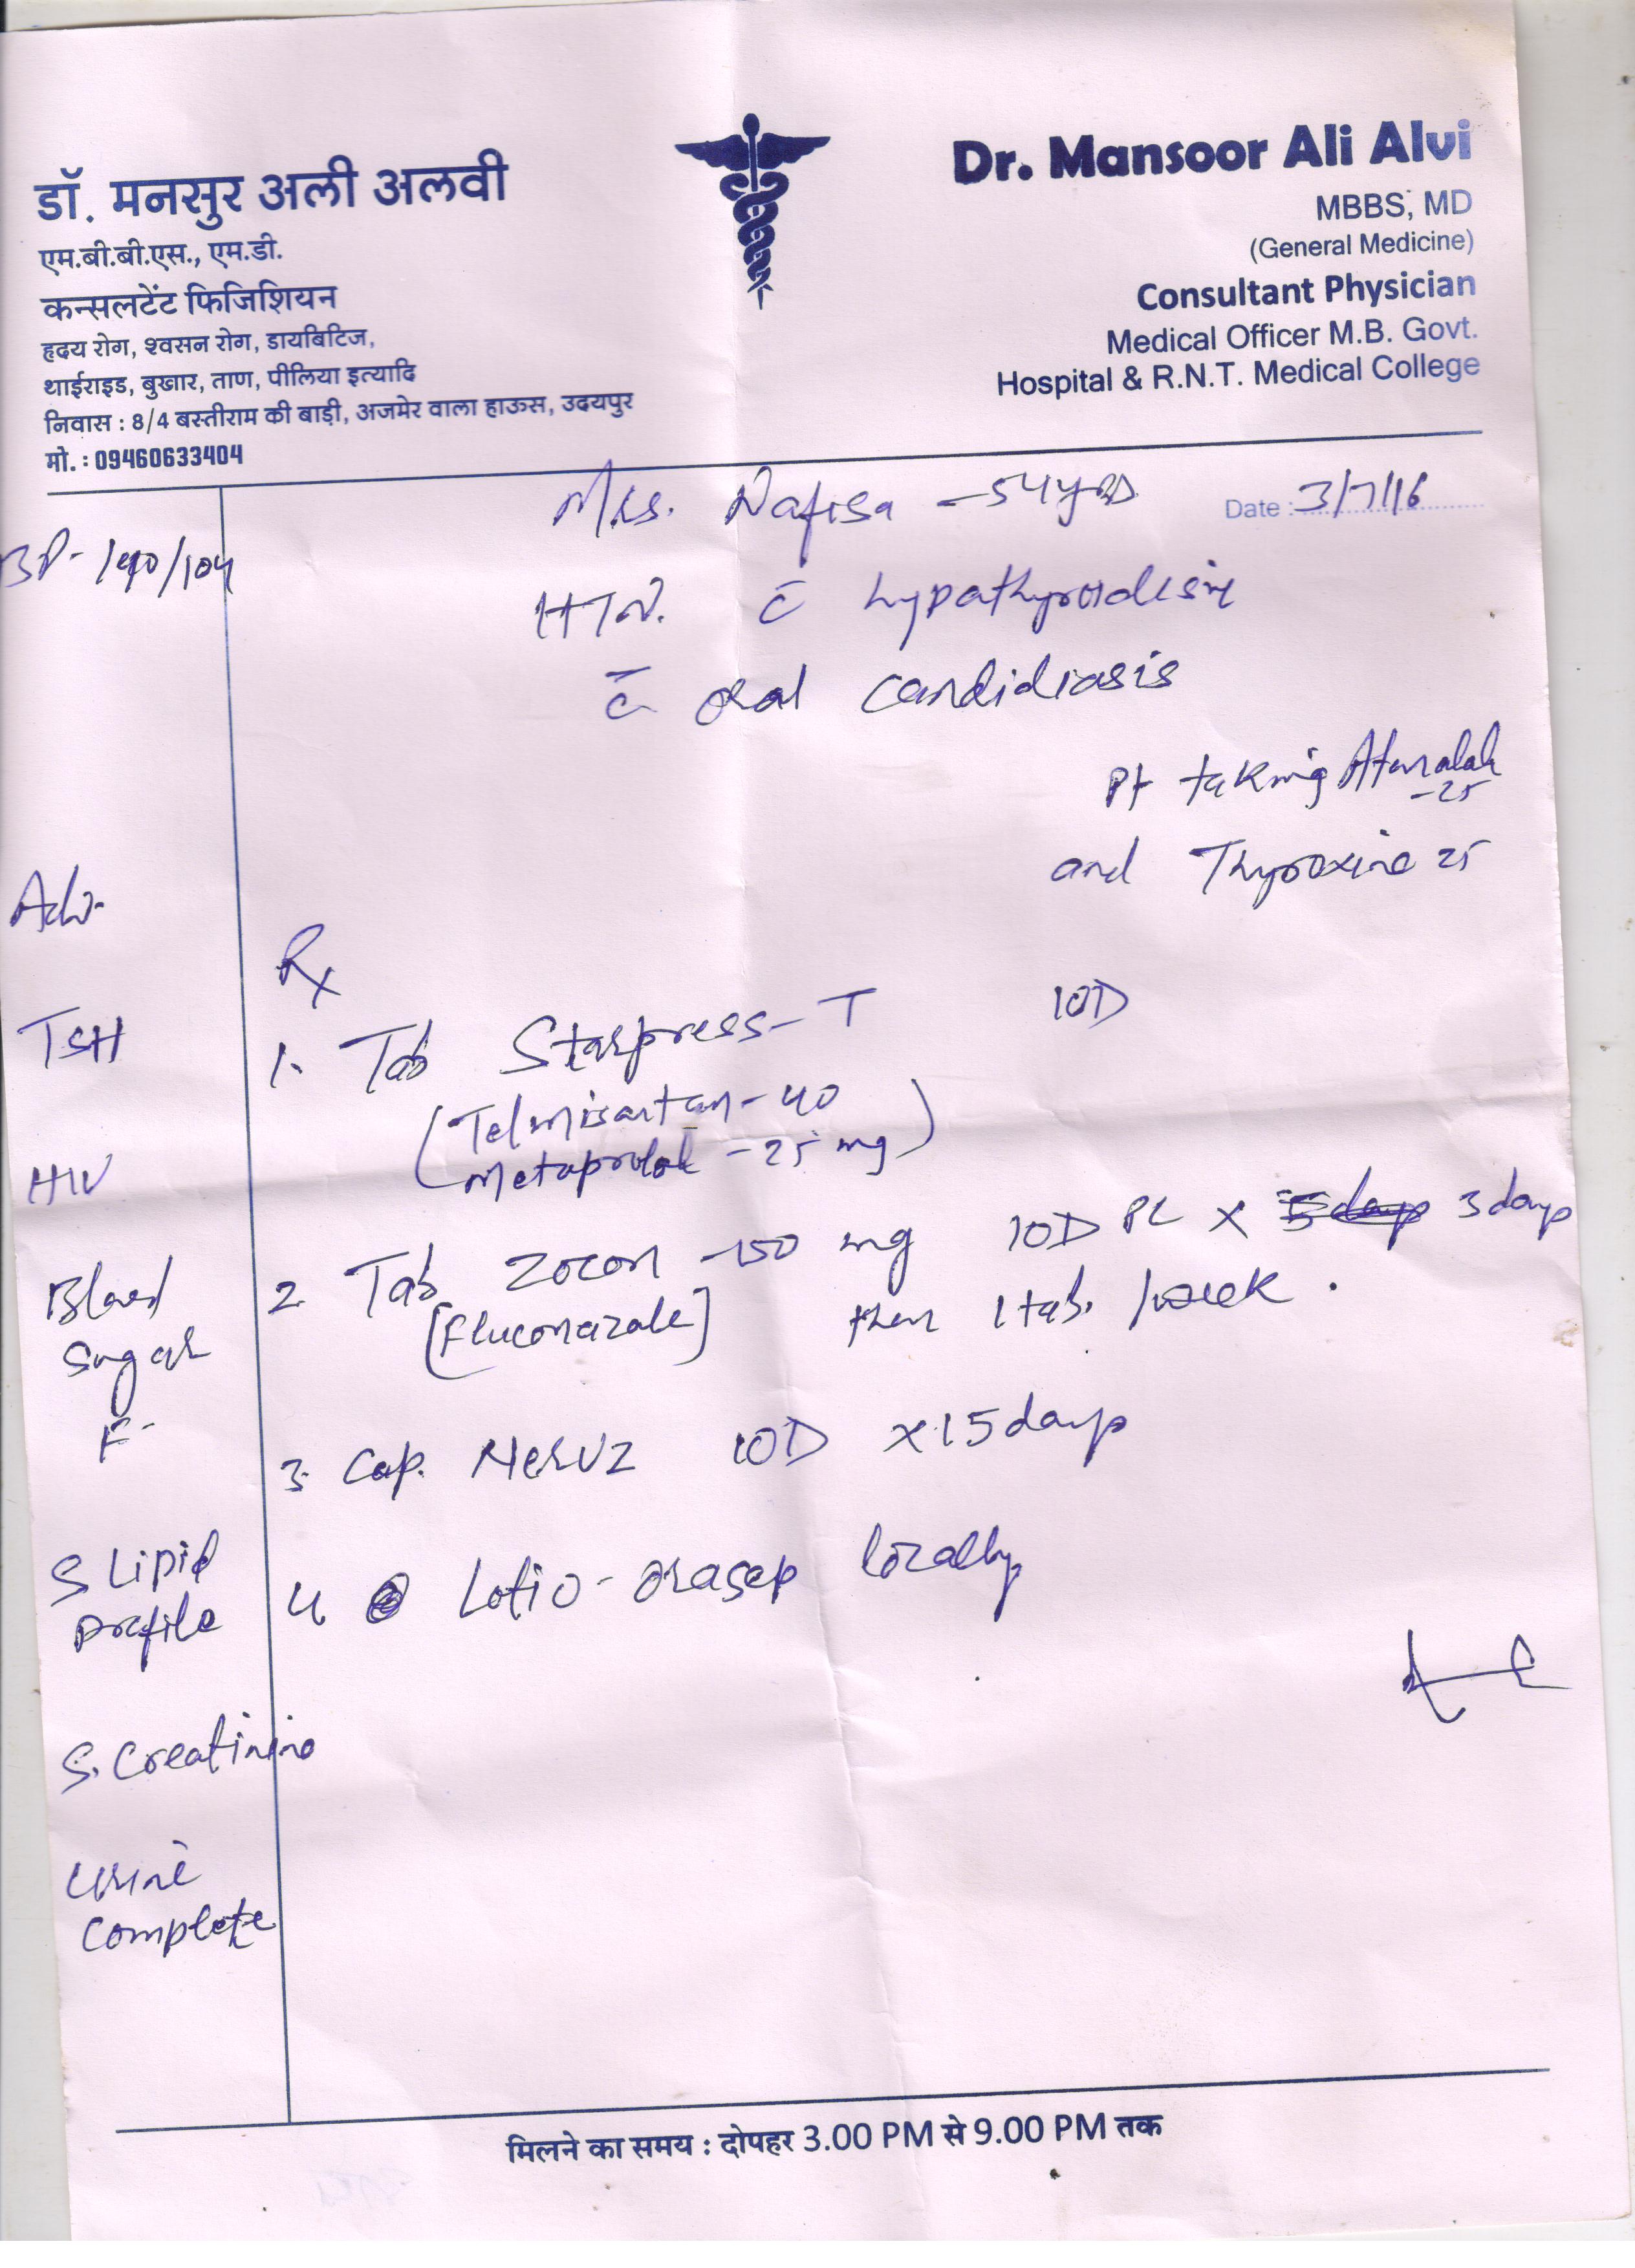 डॉ. मनसुर अली अलवी
एम.बी.बी.एस., एम.डी.
कन्सलटेंट फिजिशियन
हृदय रोग, श्वसन रोग, डायबिटिज,
थाईराइड, बुखार, ताण, पीलिया इत्यादि
निवास : 8/4 बस्तीराम की बाड़ी, अजमेर वाला हाऊस, उदयपुर
मो. : 09460633404
Dr. Mansoor Ali Alvi
MBBS, MD
(General Medicine)
Consultant Physician
Medical Officer M.B. Govt.
Hospital & R.N.T. Medical College
Mrs. Nafisa - 54 yrs
Date : 3/7/16
BP - 140/104
HTN. c̄ hypothyroidism
c̄ oral candidiasis
Pt taking Atenolol
-25
and Thyroxine 25
Adv-
TSH
HIV
Blood
Sugar
F-
S. Lipid
profile
S. Creatinine
Urine
complete
Rx
1. Tab Starpress-T 1OD
(Telmisartan - 40
Metoprolol - 25 mg)
2. Tab Zocon -150 mg 1OD PC x 3 days
[Fluconazole] then 1 tab. /week.
3. Cap. Nervz 1OD x 15 days
4. Lotio - orasep locally
मिलने का समय : दोपहर 3.00 PM से 9.00 PM तक